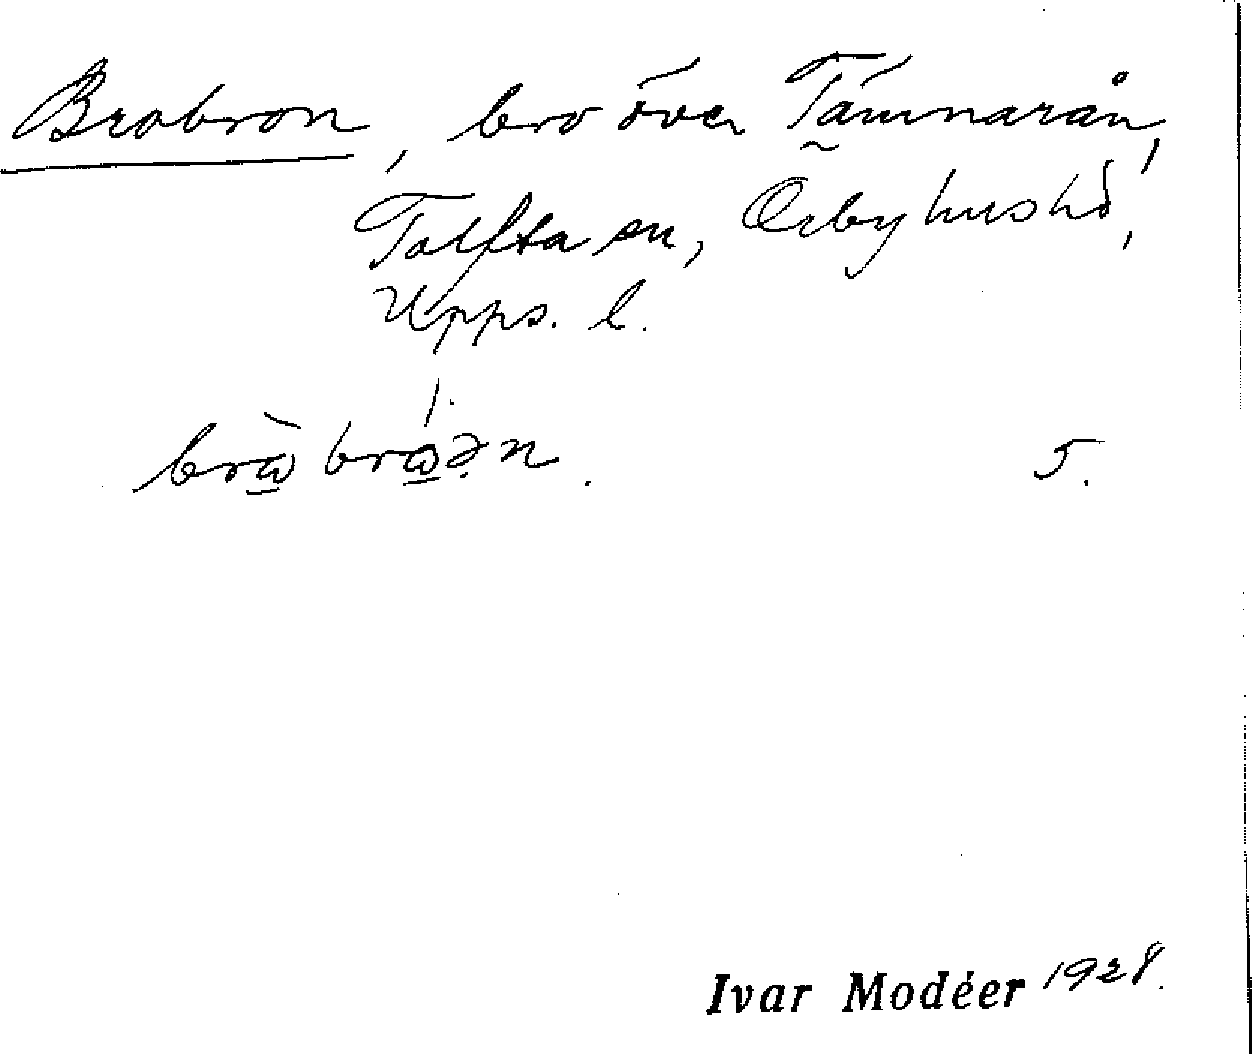 Brobron, bro över Tämnarån,
Tolfta sn, Örbyhus hd,
Upps. l.
brὼ̲ brώ̲ən. 5.
Ivar Modéer 1928.